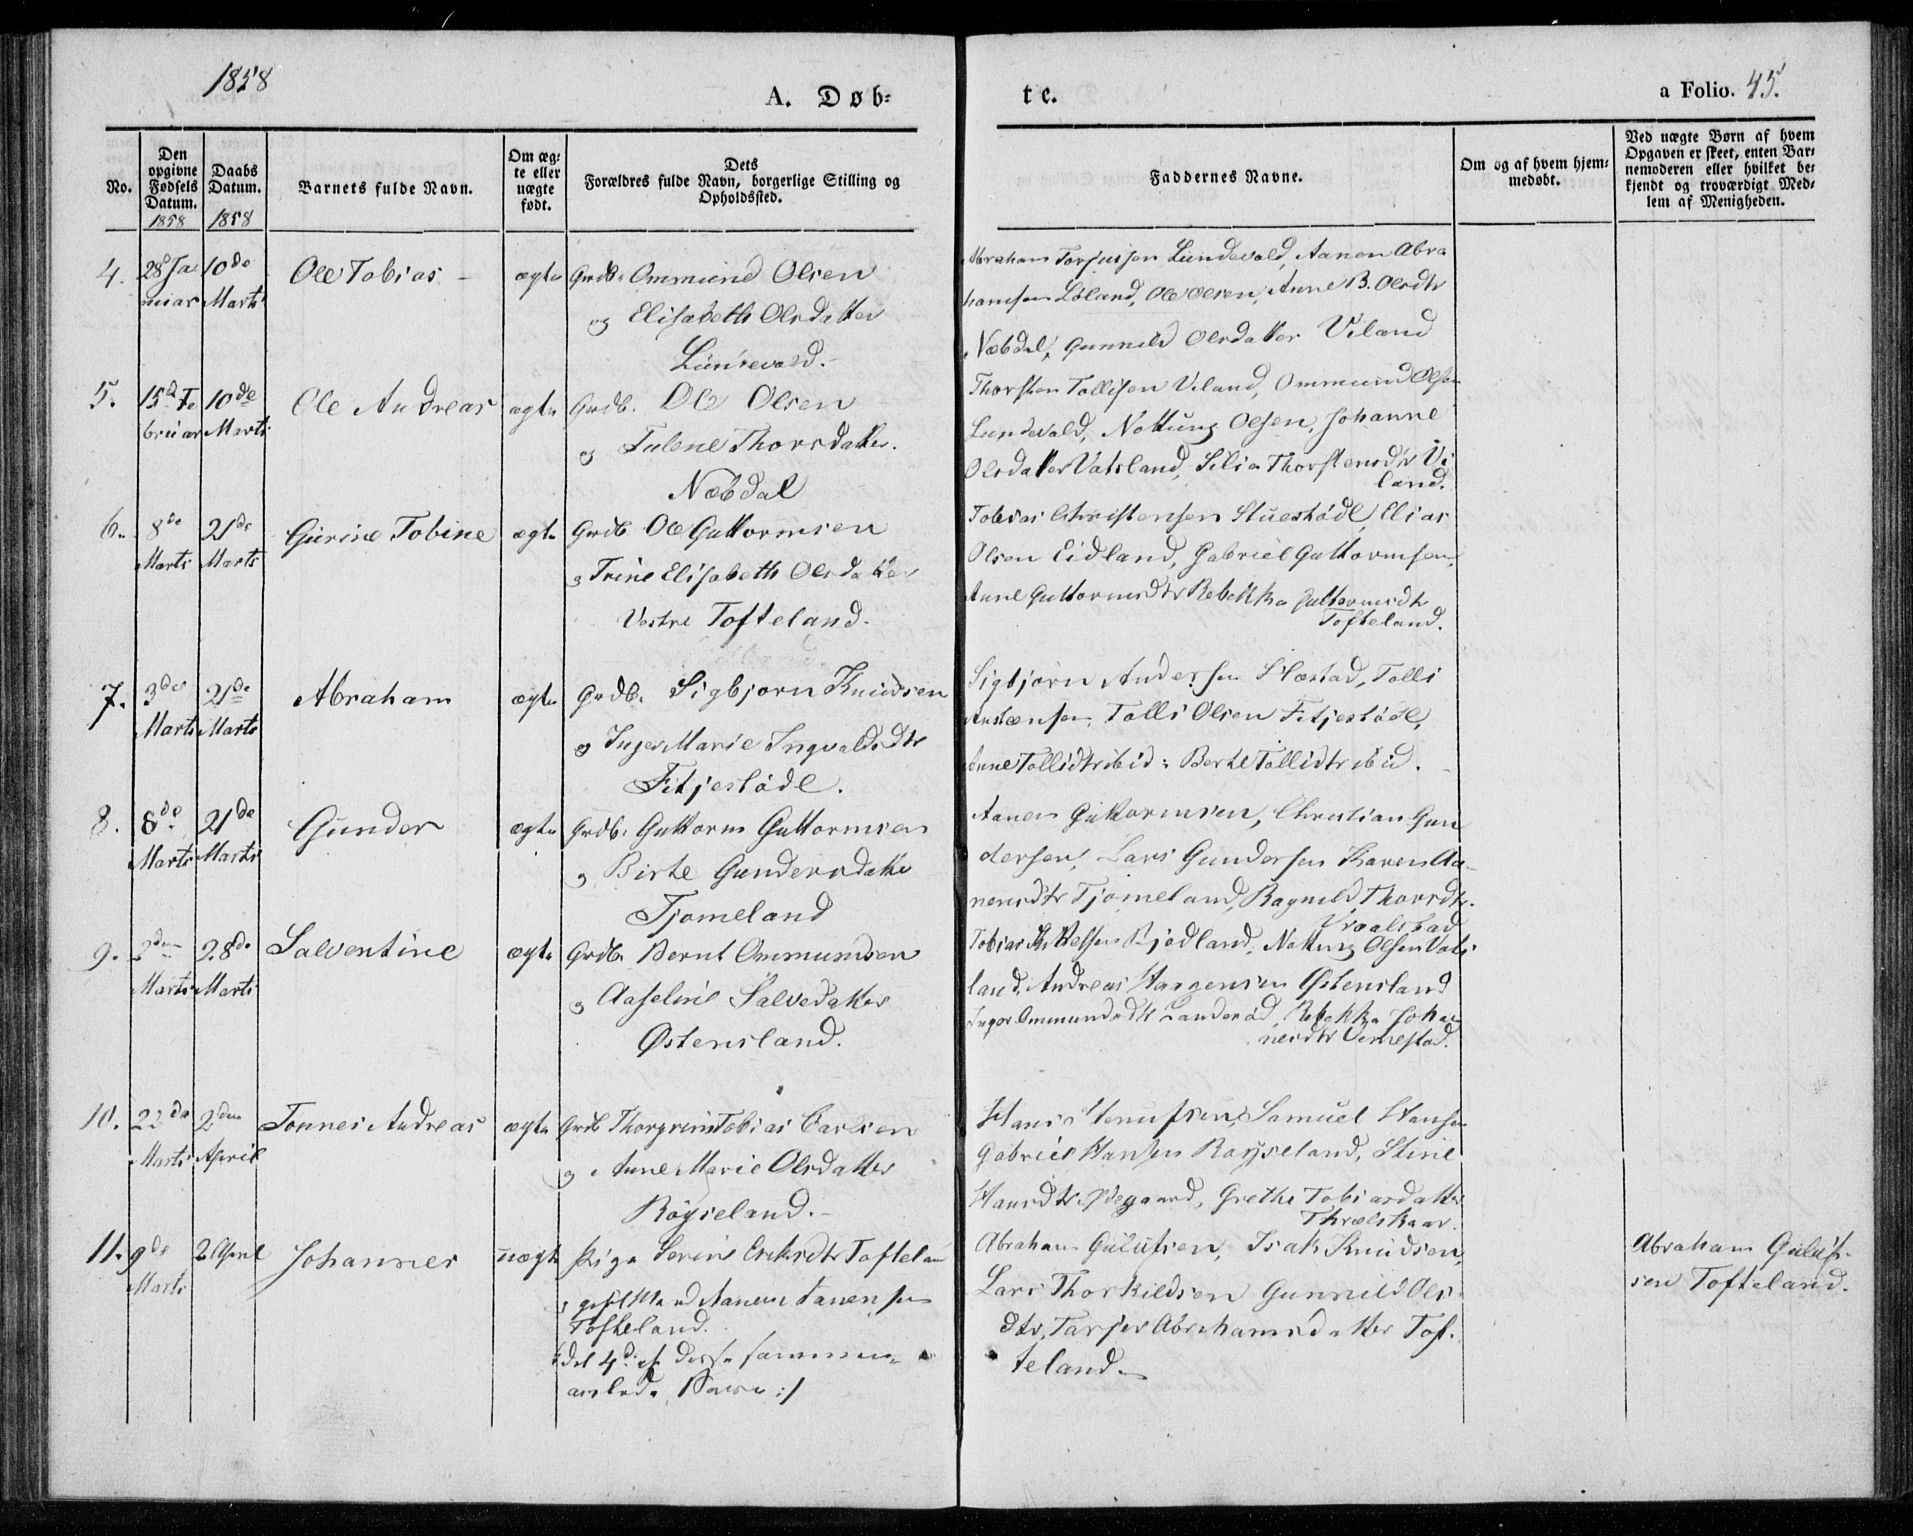 1858
A. Døb=
te.
a Folio. 45.
No.
Den opgivne Fødsels Datum. 1858
Daabs Datum. 1858
Barnets fulde Navn.
Om æg-te eller uægte født.
Dets Forældres fulde Navn, borgerlige Stilling og Opholdssted.
Faddernes Navne.
Om og af hvem hjem=medøbt.
Ved uægte Børn af hvem Opgaven er skeet, enten Bar=nemoderen eller hvilket be=kjendt og troværdigt Med=lem af Menigheden.
4. 28 Ja 10de Ole Tobias ægte Grdb. Ommund Olsen
nuar Marts og Elisabeth Olsdatter
Lundevold.
Abraham Torjussen Lundevold, Aanen Abra
hamsen Løland, Ole Olsen, Anne B. Olsdtr
Næbdal, Gunneld Olsdatter Viland
5. 15d Fe 10de Ole Andreas ægte Grdb. Ole Olsen
bruar Marts og Tulene Thorsdatter.
Næbdal
Thorsten Tollisen Viland, Ommund Olsen
Lundevold, Nottung Olsen, Johanne
Olsdatter Vatsland, Silia Thorstensdtr Vi
land.
6. 8de 21de Gurine Tobine ægte Grdb. Ole Guttormsen
Marts Marts og Trine Elisabeth Olsdatter
Vestre Tofteland.
Tobias Christensen Stuestødl, Elias
Olsen Eidland, Gabriel Guttormsen,
Anne Guttormsdtr Rebekka Guttormsdtr
Tofteland.
7. 3de 21de Abraham ægte Grdb. Sigbjørn Knudsen
Marts Marts og Inger Marie Ingvaldsdtr
Fitjestødl.
Sigbjørn Andersen Hæstad, Tolli
Aanensen, Tolli Olsen Fitjestødl,
Anne Tollidtr ibid: Berte Tollidtr ibid.
8. 8de 21de Gunder ægte Grdb. Guttorm Guttormsen
Marts Marts og Birte Gundersdatter
Tjomeland
Aanen Guttormsen, Christian Gun
dersen, Lars Gundersen Karen Aa-
nensdtr Tjomeland, Ragnild Thorsdtr.
Vraalstad
9. 2den 28de Salventine ægte Grdb. Bernt Ommundsen
Marts Marts og Aaseline Salvedatter
Østensland.
Tobias Kittelsen Bjodland, Nottung Olsen Vats
land, Andreas Haagensen Østensland
Inger Ommundsdtr Landerød, Rebekka Johan
nesdtr Vemestad.
10. 22de 2den Tønnes Andreas ægte Grdb Thorgrim Tobias Carlsen
Marts April og Anne Marie Olsdatter
Røyseland.
Hans Samuel Hansen
Gabriel Hansen Røyseland, Stine
Hansdtr Ødegaard, Grethe Tobiasdatter
Thrælskaar.
11. 9de 2 April Johannes uægte Pige Serine Eriksdtr Toftelan
Marts og gift Mand Aanen Aanensen
Tofteland.
det 4de af disse sammen
avlede Børn :/
Abraham Gulufsen, Isak Knudsen,
Lars Thorkildsen Gunnild Ols
dtr, Tarjer Abrahamsdatter Tof-
teland.
Abraham Guluf-
sen Tofteland.